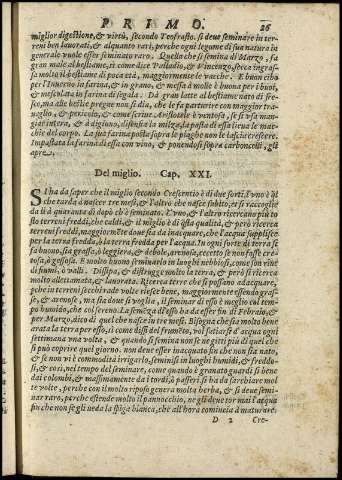 PRIMO. 26
miglior digestione, & virtù, secondo Teofrasto. si deue seminare in ter-
reni ben lauorati, & alquanto rari, perche ogni legume di sua natura in
generale vuole esser seminato raro. Quella che si semina di Marzo, fa
gran male al bestiame, si come dice Palladio, & Vincenzo, secca negras-
sa molto il bestiame di poca età, maggiormente le vacche. E buon cibo
per l'Inuerno in farina, & in grano, & messa à molle è buona per i buoi,
& mescolata in farina di segala. Dà gran latte al bestiame nato di fre-
sco, ma alle bestie pregne non si dia, che le fa parturire con maggior tra-
uaglio, & pericolo, & come scriue Aristotele è ventosa, se si vsa man-
giar intera, & à digiuno, disensia la milza, la pasta di essa lieua le mac-
chie del corpo. La sua farina posta sopra le piaghe non le lascia crescere.
Impastata la farina di essa con vino, & ponendosi sopra carboncelli, gli
apre.
Del miglio. Cap. XXI.
SI ha da saper che il miglio secondo Crescentio è di due sorti, l'vno è ql
che tarda à nascer tre mesi, & l'altro che nasce subito, et si raccoglie
da li à quaranta dì dopò ch'è seminato. L'vno, & l'altro ricercano più to
sto terreni freddi, che caldi, & il miglio è di q̃sta qualità, & però ricerca
terreni freddi, maggiormẽte doue sia da inacquare, che l'acqua supplisce
per la terra fredda, ò la terra fredda per l'acqua. In ogni sorte di terra si
fà buono, sia grassa, ò leggiera, & debole, arenosa, eccetto se non fosse cre-
tosa, ò gessosa. E molto buono seminarlo in luoghi nebbiosi, come son riue
di fiumi, ò valli. Dissipa, & distrugge molto la terra, & però si ricerca
molto allettamata, & lauorata. Ricerca terre che si possano adacquare,
pche in terreni secchi rade volte riesce bene, maggiormente essendo gras-
se, & arenose, ma sia doue si voglia, il seminar di esso è meglio col tem-
po humido, che col sereno. La semẽza d'esso ha da esser fin di Febraio, &
per Marzo, dico di quel che nasce in tre mesi. Bisogna che sia molto bene
arata la terra per esso, si come dissi del frumẽto, vol settarsi d'acqua ogni
settimana vna volta, & quando si semina non se ne gitti più di quel che
si può coprire quel giorno. non deue esser inacquato fin che non sia nato,
& se non vi è commodità irrigarlo, seminisi in luoghi humidi, & freddo-
si, & così, nel tempo del seminare, come quando è granato guardi si bene
dai colombi, & massimamente da i tordi, ò passeri si ha da sarchiare mol
te volte, perche con il molto riposo genera molta herba, & si deue semi-
nar raro, perche estende molto il pannocchio, ne gli deue tor mai l'acqua
fin che non se gli ueda la spiga bianca, che all'hora comincia à maturare.
D 2 Cre-